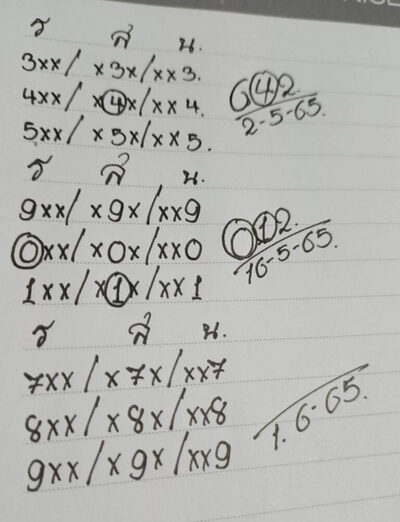 ร ส น.
3xx/ x3x/xx3.
4xx/ x4x/xx4. 642
5xx/ x5x/xx5. 2-5-65.
ร ส น.
9xx/ x9x/xx9
0xx/x0x/xx0 012
1xx/x1x/xx1 16-5-65.
ร ส น.
7xx/x7x/xx7
8xx/x8x/xx8 1.6-65.
9xx/x9x/xx9